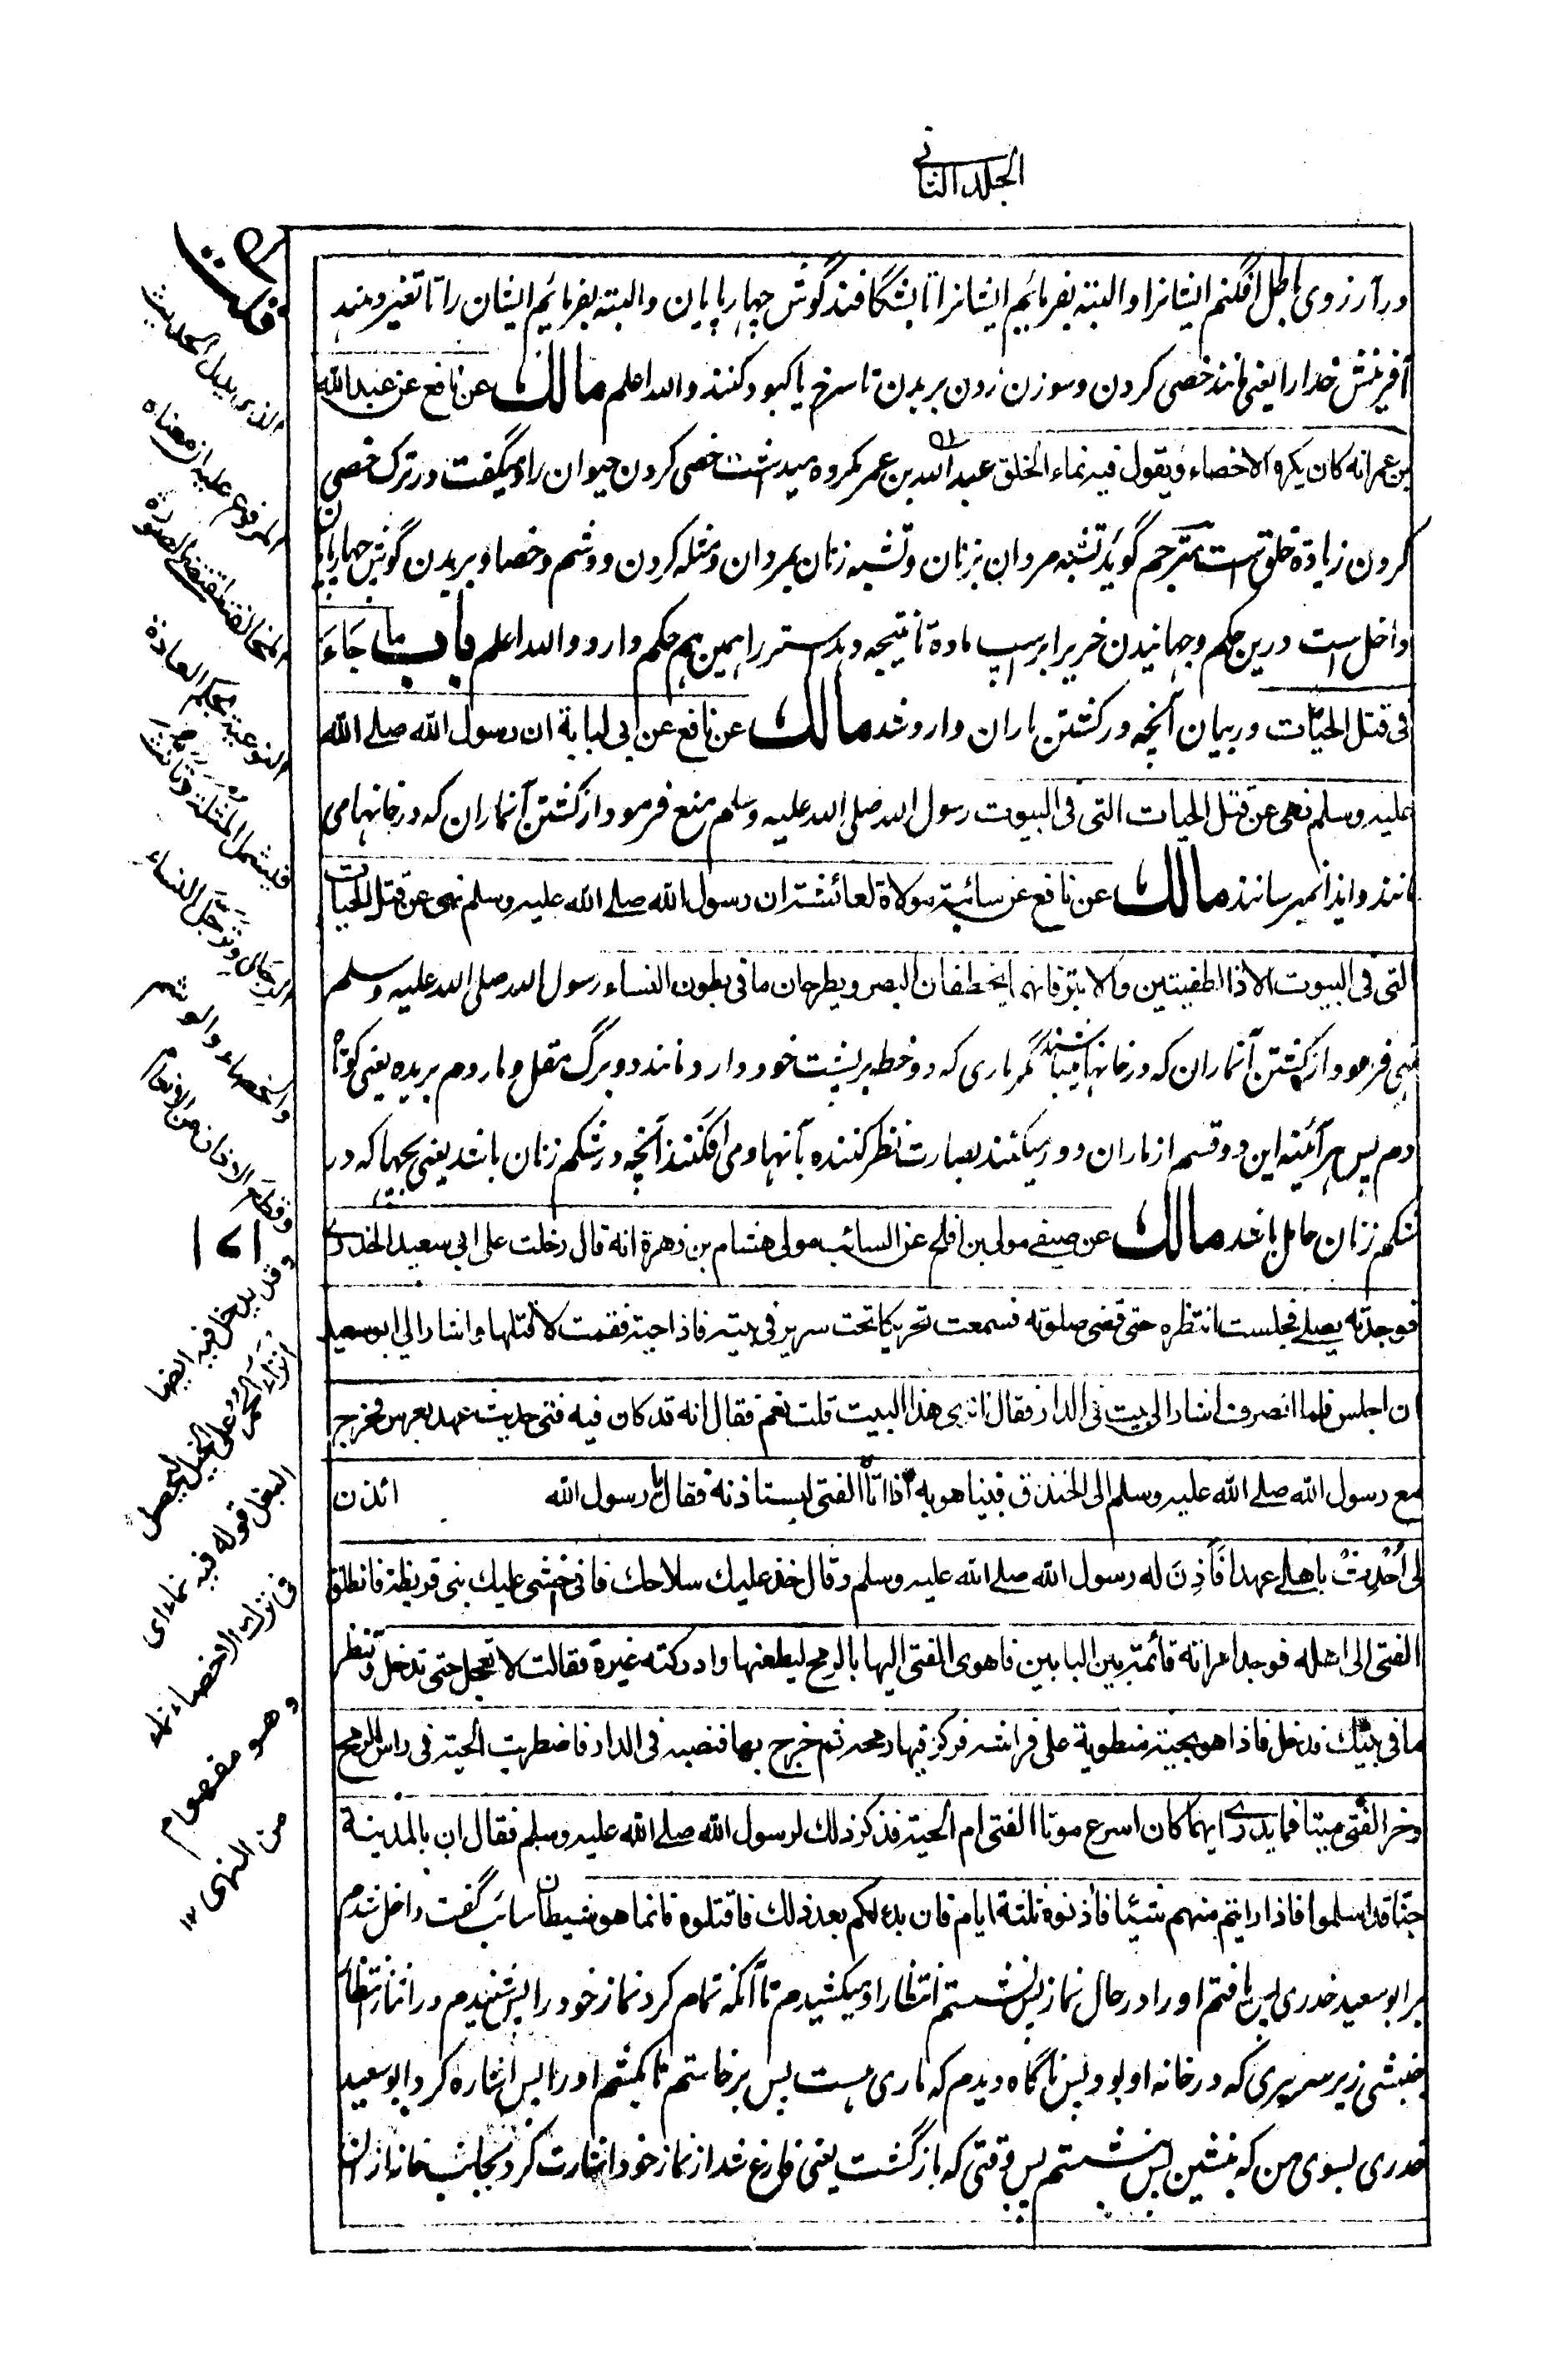 الجلد الثانی
در آرزوی باطل افگنم ایشانرا و البته بفرمایٔم ایشانرا تا بشگافند گوش چهارپایان و البته بفرمایٔم ایشان را تا تغیر دهند
آفرینش خدا را یعنی مانند خصی کردن و سوزن زدن بر بدن تا سرخ یا کبود کنند والله اعلم مالك عن نافع عن عبد الله
بن عمر انه كان يكره الاخصاء ويقول فيه نماء الخلق عبد الله بن عمر مکروه میدشت خصی کردن حیوان را و میگفت در ترک خصی
کردن زیادة خلق ست مترجم گوید تشبه مردان بزنان و تشبه زنان بمردان و مثله کردن و وشم و خصا و بریدن گوش چهارپایان
داخل ست درین حکم و جهانیدن خر بر اسپ ماده تا نتیجه دهد استر را همین هم حکم دارد والله اعلم باب ما جَاءَ
فى قتل الحيّات در بیان آنچه در کشتن ماران وارد شد مالك عن نافع عن ابى لبابة ان رسول الله صلے الله
عليه وسلم نهى عن قتل الحيات التى فى البيوت رسول الله صلی الله علیه وسلم منع فرمود از کشتن آنماران که در خانهامی
مانند و ایذا نمیرسانند مالك عن نافع عن سائبة مولاة لعائشة ان رسول الله صلے الله عليه وسلم نهى عن قتل الحيات
التى فى البيوت الا ذا الطفيتين والابتر فانهما يخطفان البصر ويطرحان ما فى بطون النساء رسول الله صلی الله علیه وسلم
نهی فرمود از کشتن آنماران که در خانها میباشند مگر ماری که دو خط بر پشت خود دارد مانند دو برگ مقل و مار دم بریده یعنی کوتاه
دم پس هر آئینه این دو قسم از ماران دور میکنند بصارت نظر کننده بآنها و می افکنند آنچه در شکم زنان باشد یعنی بچها که در
شکم زنان حامل باشد مالك عن صيفے مولى بن افلح عن السائب مولى هشام بن زهرة انه قال دخلت على ابى سعيد الخدرى
فوجدته يصلے فجلست انتظره حتى قضى صلوته فسمعت تحريكا تحت سرير فى بيته فاذا حية فقمت لاقتلها واشار الى ابو سعيد
ان اجلس فلما انصرف اشار الى بيت فى الدار فقال اترى هذا البيت قلت نعم فقال انه قد كان فيه فتى حديث عهد بعرس فخرج
مع رسول الله صلے الله عليه وسلم الى الخندق فبينا هو به اذ اتاه الفتى ليستاذنه فقال يا رسول الله ائذن
لى اُحْدِثْ باهلے عهدا فَاَذِنَ له رسول الله صلے الله عليه وسلم وقال خذ عليك سلاحك فانى اخشى عليك بنى قريظة فانطلق
الفتى الى اهله فوجد امراته قائمة بين البابين فاهوى الفتى اليها بالرمح ليطعنها وادركته غيرة فقالت لا تعجل حتى تدخل وتنظر
ما فى بيتك فدخل فاذا هو بحية منطوية على فراشه فركز فيها رمحه ثم خرج بها فنصبه فى الدار فاضطربت الحية فى راس الرمح
وخر الفتى ميتا فما يدرى ايهما كان اسرع موتا الفتى ام الحية فذكر ذلك لرسول الله صلے الله عليه وسلم فقال ان بالمدينة
جنا قد اسلموا فاذا رايتم منهم شيئا فأذنوه ثلثة ايام فان بدء لكم بعد ذلك فاقتلوه فانما هو شيطان سائب گفت داخل شدم
بر ابو سعید خدری پس یافتم او را در حال نماز پس نشستم انتظار او میکشیدم تا آنکه تمام کرد نماز خود را پس شنیدم در اثنا انتظار
جنبشی زیر سریری که در خانه او بود پس ناگاه دیدم که ماری هست پس برخاستم تا بکشم او را پس اشاره کرد ابو سعید
خدری بسوی من که بنشین پس نشستم پس وقتی که بازگشت یعنی فارغ شد از نماز خود اشارت کرد بجانب خانه از ان
قلت
الذى يدل الحديث
المرفوع عليه ان معناه
المخالفة لمقتضے الصورة
النوعية بحكم العادة
فيشمل المثلة وتأنث
الرجال وترجّل النساء
والخصاء والوشم
وقطع الاذان من الانعام
وقد يدخل فيه ايضا
انزاء الحمر على الخيل ليحصل
البغل قوله فيه نماء اى
فى ترك الاخصاء نماء
وهو مفهوم
من النهى ١٢